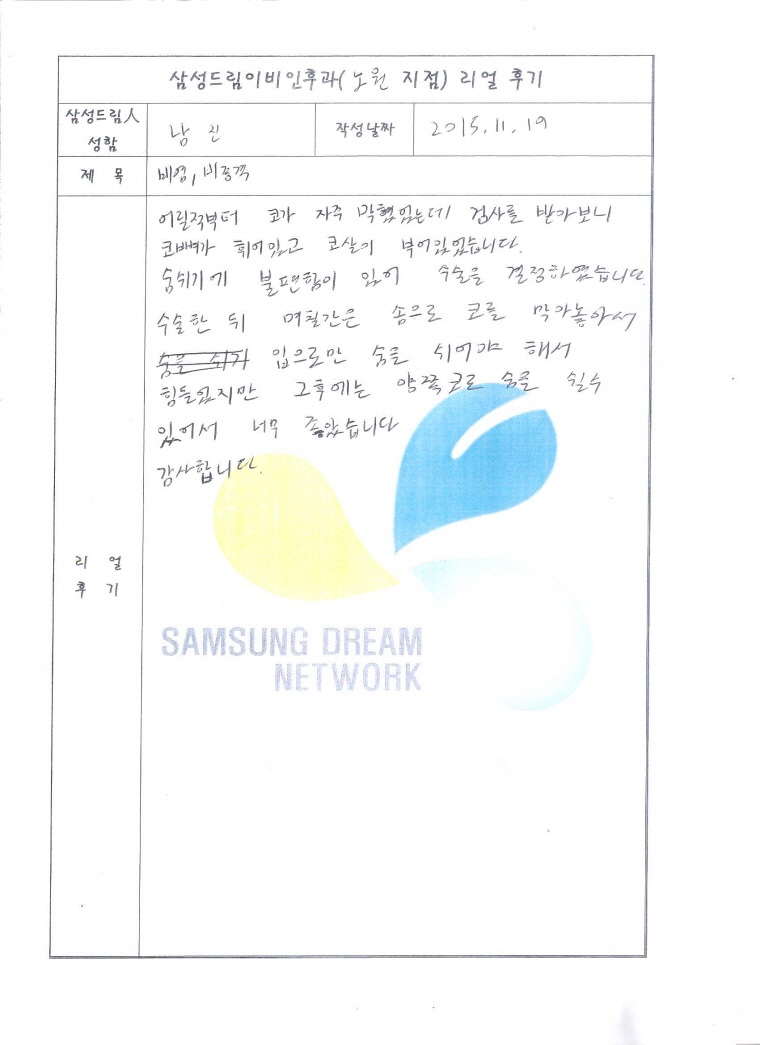 삼성드림이비인후과(노원 지점) 리얼 후기
삼성드림人 성함
남 진
작성날짜
2015.11.19
제 목
비염, 비중격
어릴적부터 코가 자주 막혔었는데 검사를 받아보니
코뼈가 휘어있고 코살이 부어있었습니다.
숨쉬기에 불편함이 있어 수술을 결정하였습니다.
수술한 뒤 며칠간은 솜으로 코를 막아놓아서
숨을 쉬기 입으로만 숨를 쉬어야 해서
힘들었지만 그후에는 양쪽코로 숨을 쉴수
있어서 너무 좋았습니다
감사합니다.
리 얼
후 기
SAMSUNG DREAM
NETWORK